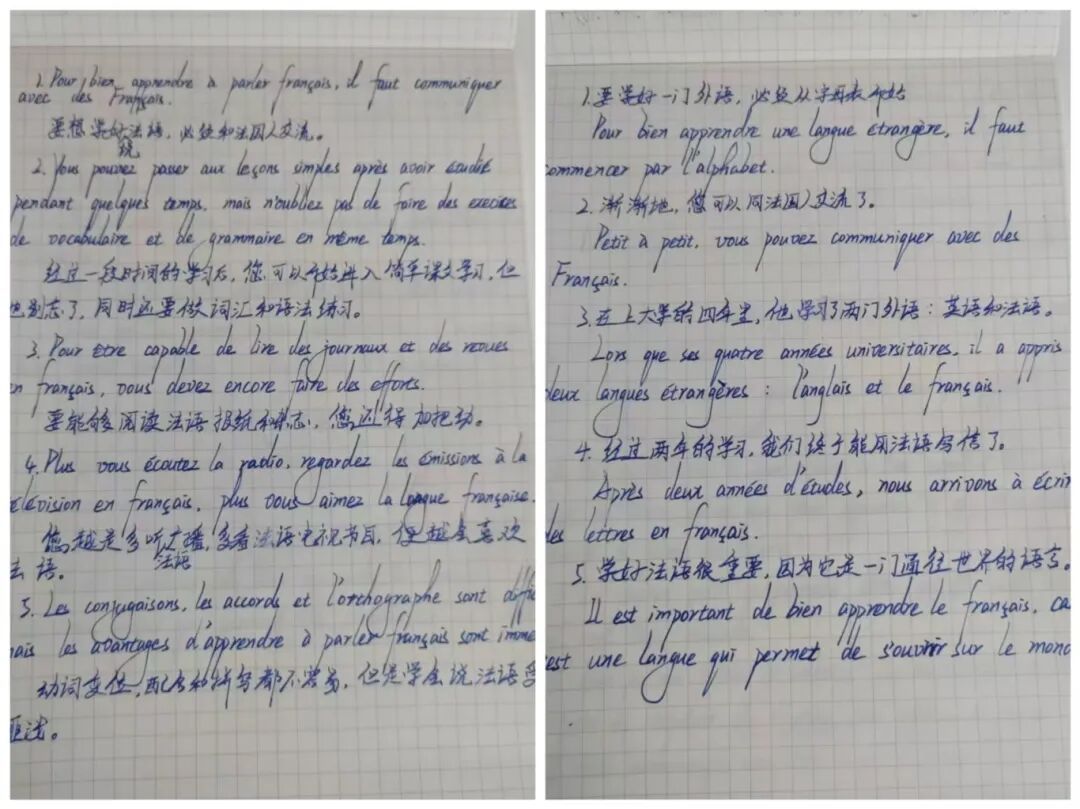 1. Pour bien apprendre à parler français, il faut communiquer
avec des Français.
要想学好法语，必须和法国人交流。
说
2. Vous pouvez passer aux leçons simples après avoir étudié
pendant quelques temps, mais n'oubliez pas de faire des execices
de vocabulaire et de grammaire en même temps.
经过一段时间的学习后，您可以开始进入简单课文学习，但
也别忘了，同时还要做词汇和语法练习。
3. Pour être capable de lire des journaux et des revues
en français, vous devez encore faire des efforts.
要能够阅读法语报纸和杂志，您还得加把劲。
4. Plus vous écoutez la radio, regardez les émissions à la
élévision en français, plus vous aimez la langue française.
您越是多听广播，多看法语电视节目，便越会喜欢
法语
去语。
5. Les conjugaisons, les accords et l'orthographe sont diffi
mais les avantages d'apprendre à parler français sont imme
动词变位，配合和拼写都不容易，但是学会说法语受
匪浅。
1. 要学好一门外语，必须从字母表开始
Pour bien apprendre une langue étrangère, il faut
commencer par l'alphabet.
2. 渐渐地，您可以同法国人交流了。
Petit à petit, vous pouvez communiquer avec des
Français.
3. 在上大学的四年里，他学习了两门外语：英语和法语。
Lors que ses quatre années universitaires, il a appris
deux langues étrangères : l'anglais et le français.
4. 经过两年的学习，我们终于能用法语写信了。
Après deux années d'études, nous arrivons à écrir
des lettres en français.
5. 学好法语很重要，因为它是一门通往世界的语言。
Il est important de bien apprendre le français, ca
est une langue qui permet de s'ouvrir sur le mond